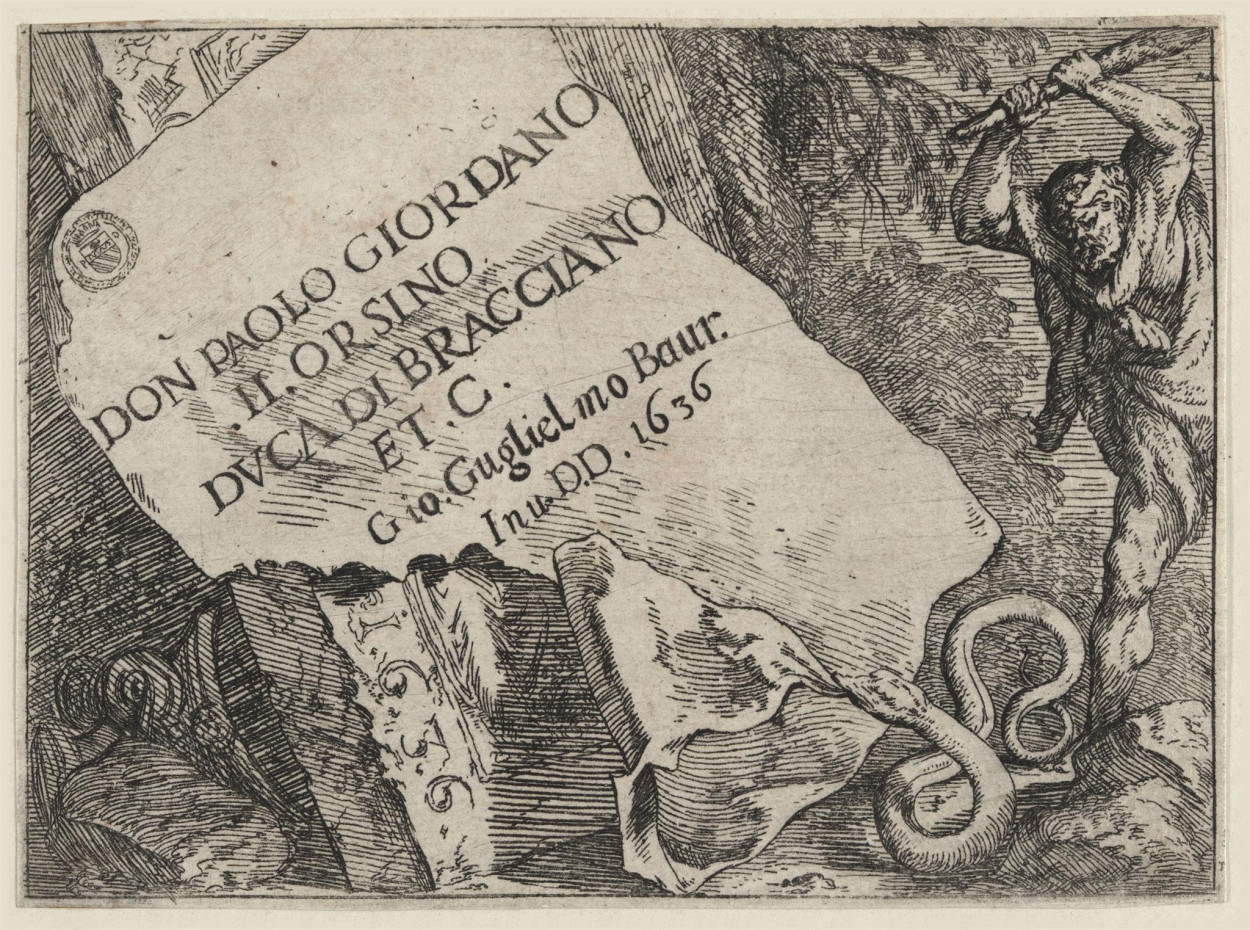 DON PAOLO GIORDANO
.II. ORSINO
DVCA DI BRACCIANO
ET. C.
Gio. Guglielmo Baur.
Inu. D.D. 1636
1636